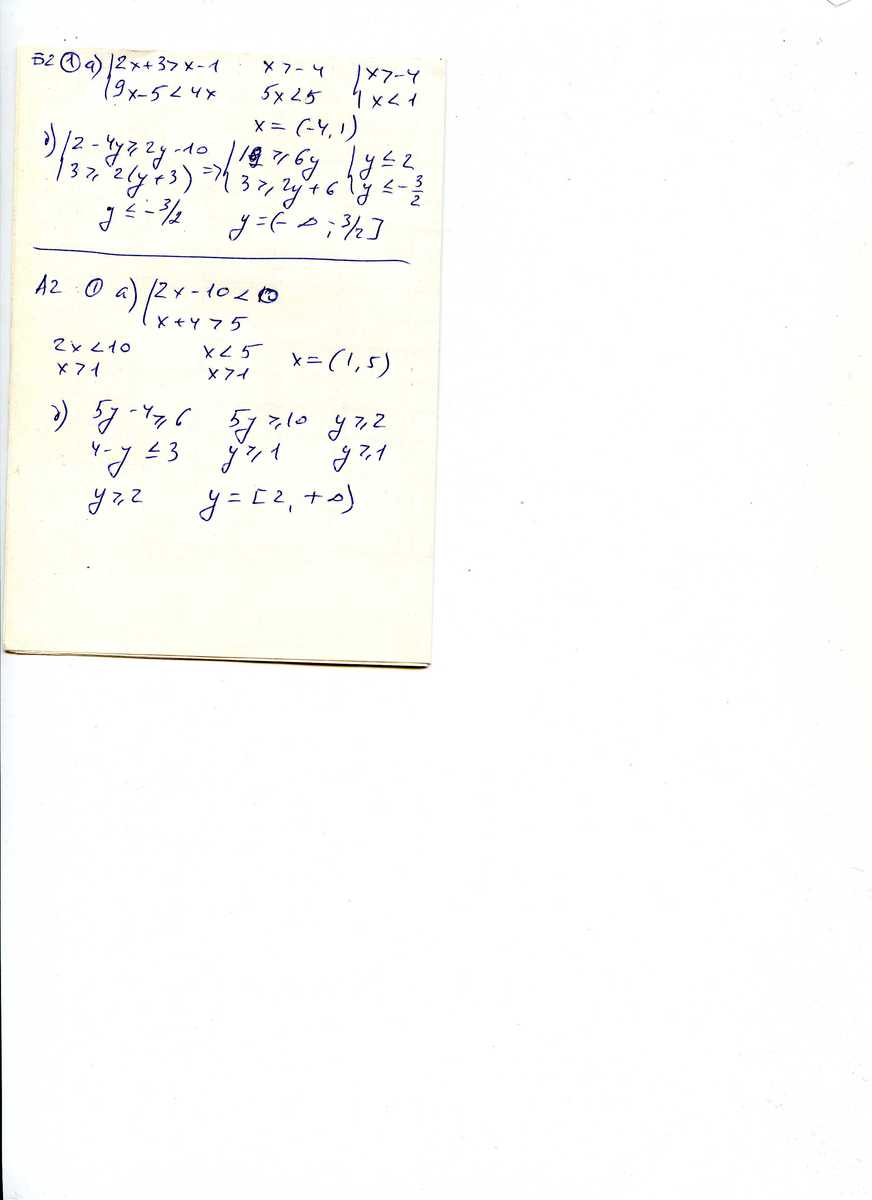 Б2 ① а) { 2x+3>x-1   x>-4   { x>-4
{ 9x-5<4x   5x<5   { x<1
x = (-4, 1)
б) { 2-4y ≥ 2y-10   { 12 ≥ 6y   { y ≤ 2
{ 3 ≥ 2(y+3) => { 3 ≥ 2y+6   { y ≤ -3/2
y ≤ -3/2   y = (-∞; 3/2]
А2 ① а) { 2x-10<0
{ x+4>5
2x<10   x<5   x = (1, 5)
x>1   x>1
б) 5y-4 ≥ 6   5y ≥ 10   y ≥ 2
4-y ≤ 3   y ≥ 1   y ≥ 1
y ≥ 2   y = [2, +∞)